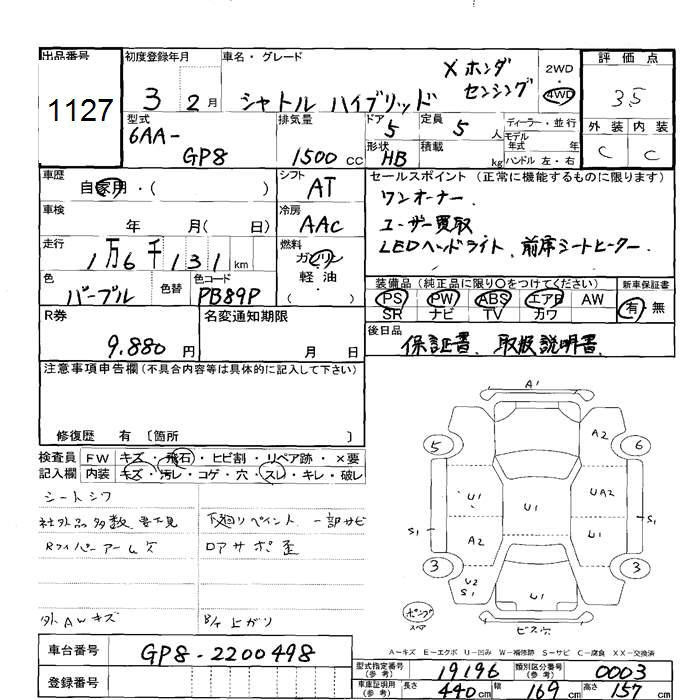 出品番号 初度登録年月 車名・グレード 評価点
1127 3 2月 シャトル ハイブリッド X ホンダ センシング 2WD 4WD 35
型式 排気量 ドア 定員 ディーラー・並行 外装 内装
6AA-GP8 1500cc 5 5人 モデル年式 年 C C
形状 HB 積載 kg ハンドル 左・右
車歴 シフト セールスポイント (正常に機能するものに限ります)
自家用・( ) AT ワンオーナー.
車検 冷房 ユーザー買取
年 月( 日) AAC LEDヘッドライト、前席シートヒーター.
走行 燃料
1万6千131km ガソリン 軽油・( )
色 色替 色コード 装備品 (純正品に限り○をつけてください) 新車保証書
パープル PB89P PS PW ABS エアB AW 有・無
SR ナビ TV カワ
R券 名変通知期限 後日品
9.880円 月 日 保証書、取扱説明書、
注意事項申告欄(不具合内容等は具体的に記入して下さい)
修復歴 有 〔箇所 〕
検査員 FW キズ・飛石・ヒビ割・リペア跡・×要
記入欄 内装 キズ・汚レ・コゲ・穴・スレ・キレ・破レ
シートシワ
社外品多数 要下見 下廻りペイント 一部サビ
Rワイパーアーム欠 ロアサポ歪
外AWキズ B/t上がり
A1
5 A2 6
U1 U1 UA2
S1 A2 U1 S1
3 3
U2 S1 U1
スペア
A-キズ E-エクボ U-凹み W-補修跡 S-サビ C-腐食 XX-交換済
車台番号 GP8-2200498
登録番号
型式指定番号(参考) 19196 類別区分番号(参考) 0003
車庫証明用(参考) 長さ 440cm 幅 169cm 高さ 157cm